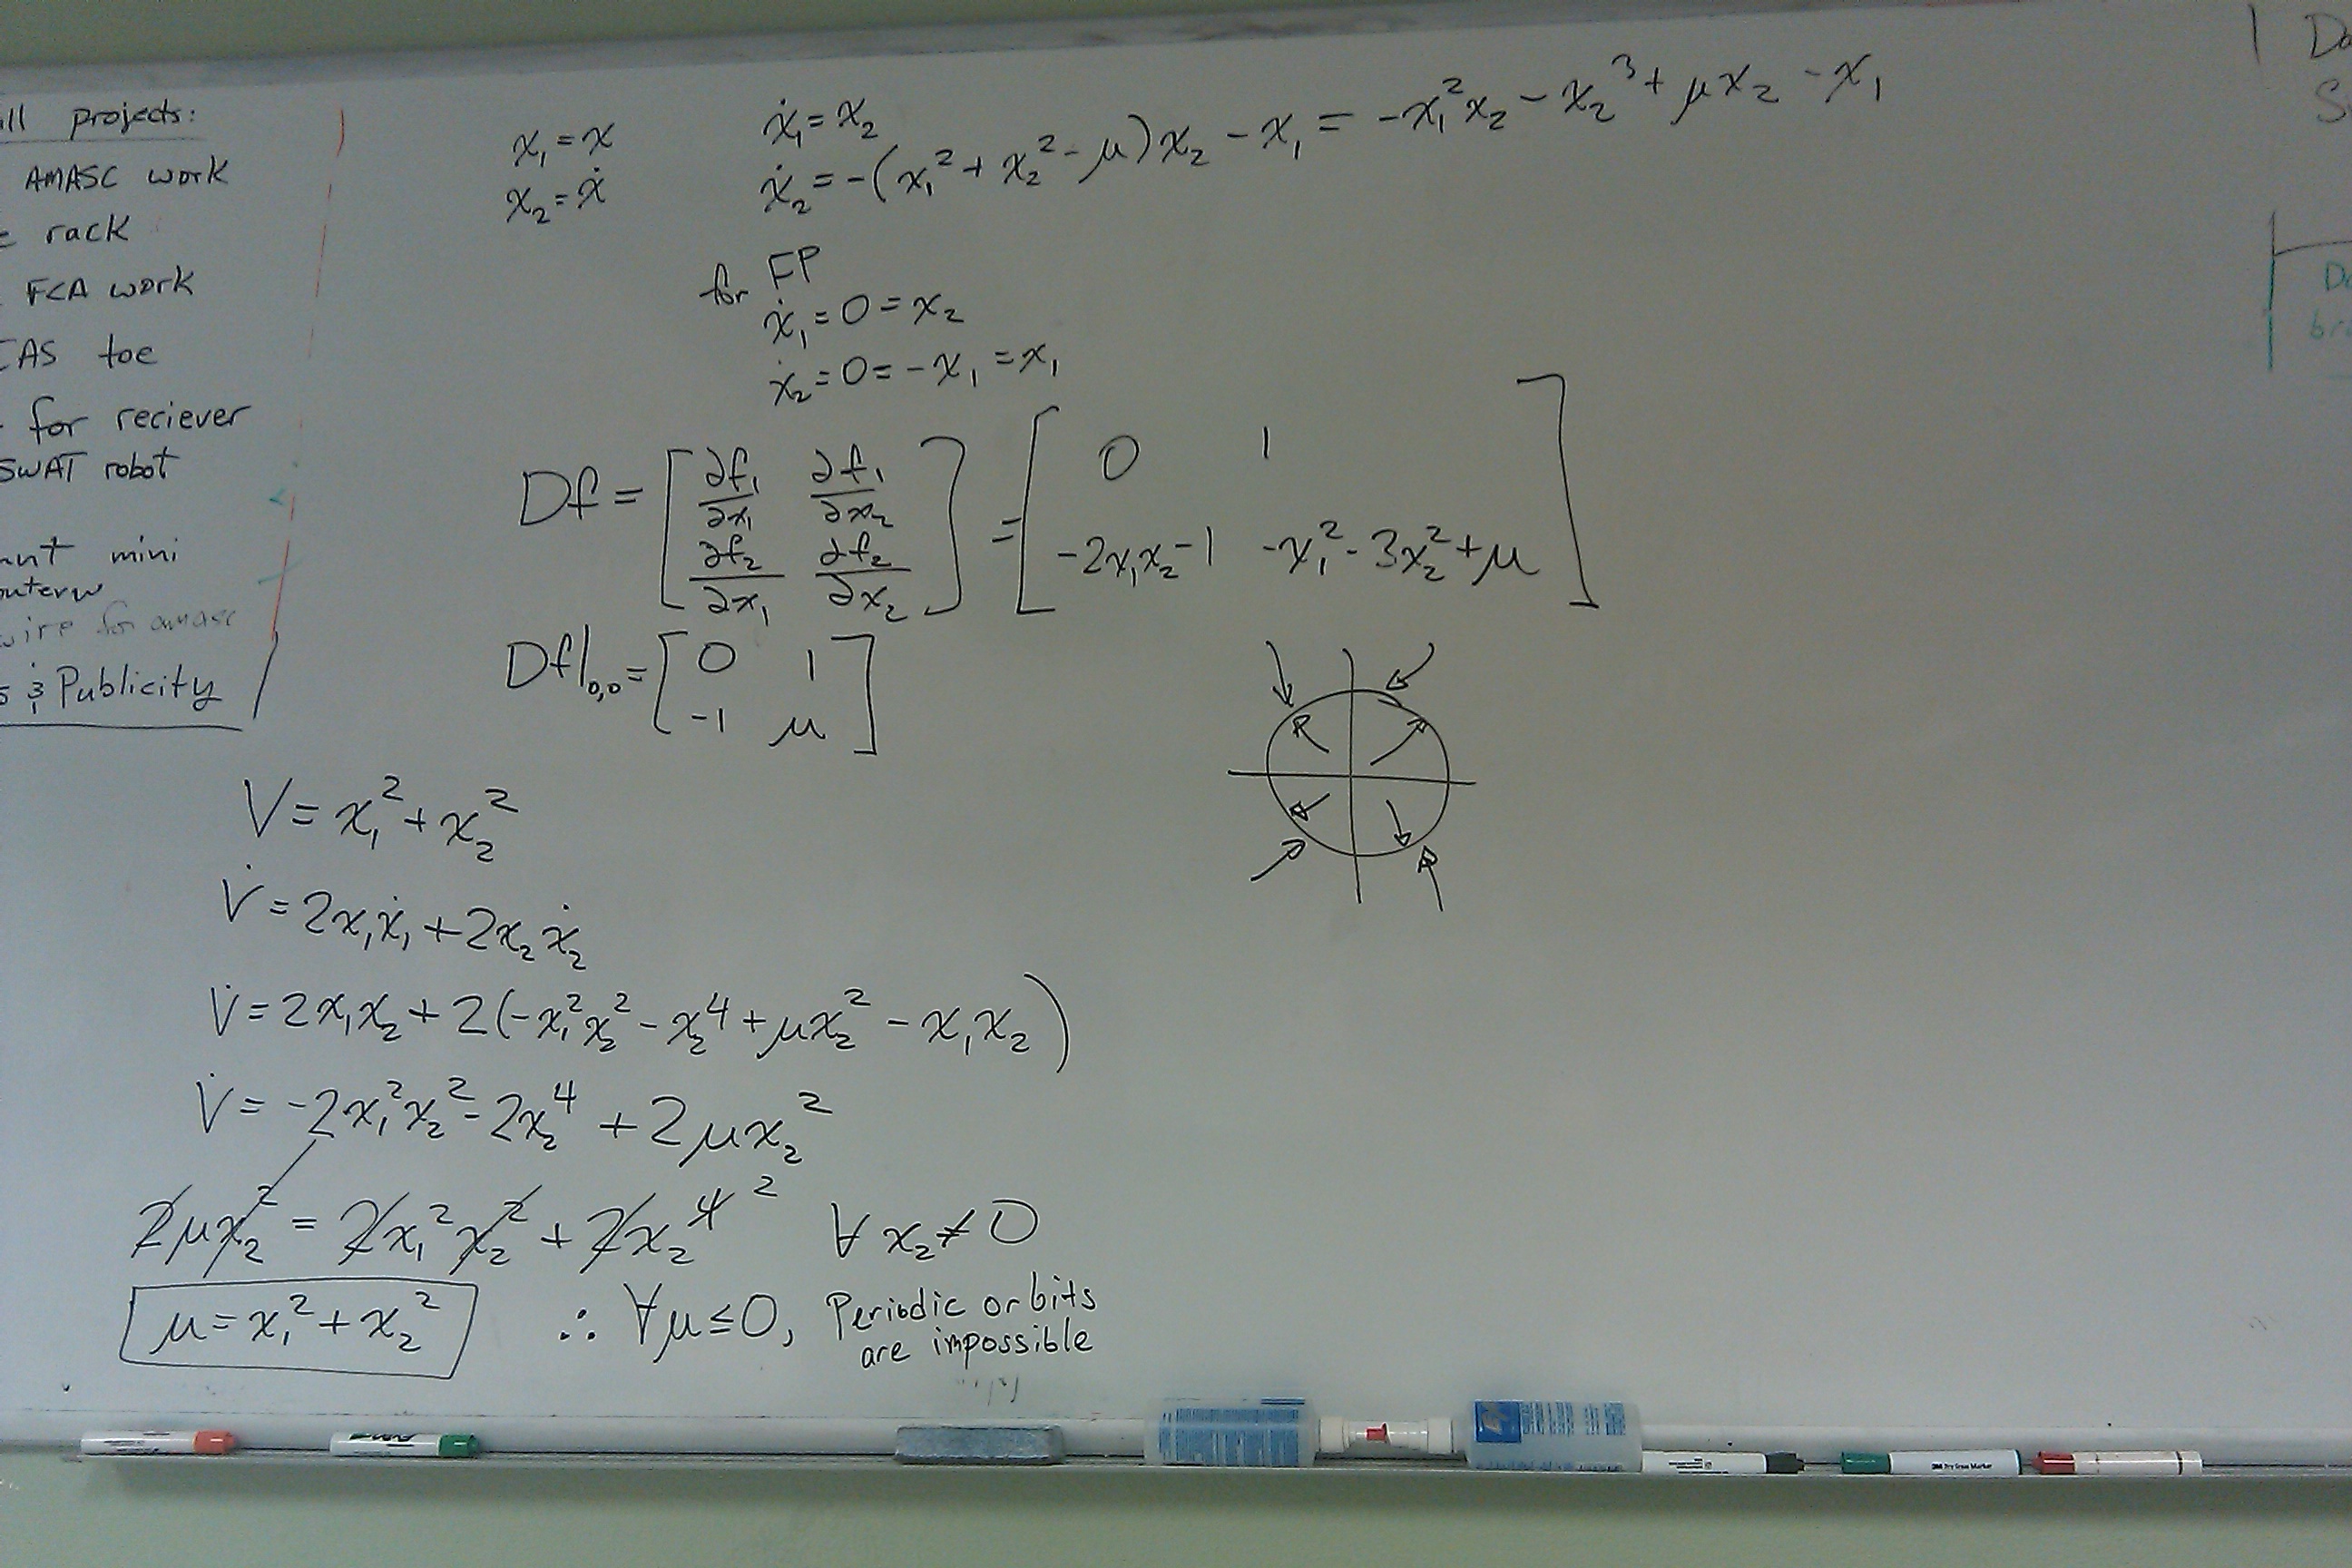 projects:
AMASC work
rack
FCA work
toe
for reciever
SWAT robot
mini
wire for amasc
& Publicity
x₁ = x
x₂ = ẋ
ẋ₁ = x₂
ẋ₂ = -(x₁² + x₂² - μ)x₂ - x₁ = -x₁²x₂ - x₂³ + μx₂ - x₁
for FP
ẋ₁ = 0 = x₂
ẋ₂ = 0 = -x₁ = x₁
Df = [∂f₁/∂x₁ ∂f₁/∂x₂ ; ∂f₂/∂x₁ ∂f₂/∂x₂] = [0 1 ; -2x₁x₂-1 -x₁²-3x₂²+μ]
Df|₀,₀ = [0 1 ; -1 μ]
V = x₁² + x₂²
V̇ = 2x₁ẋ₁ + 2x₂ẋ₂
V̇ = 2x₁x₂ + 2(-x₁²x₂² - x₂⁴ + μx₂² - x₁x₂)
V̇ = -2x₁²x₂² - 2x₂⁴ + 2μx₂²
2μx₂² = 2x₁²x₂² + 2x₂⁴ ² ∀ x₂ ≠ 0
μ = x₁² + x₂² ∴ ∀μ ≤ 0, Periodic orbits
are impossible